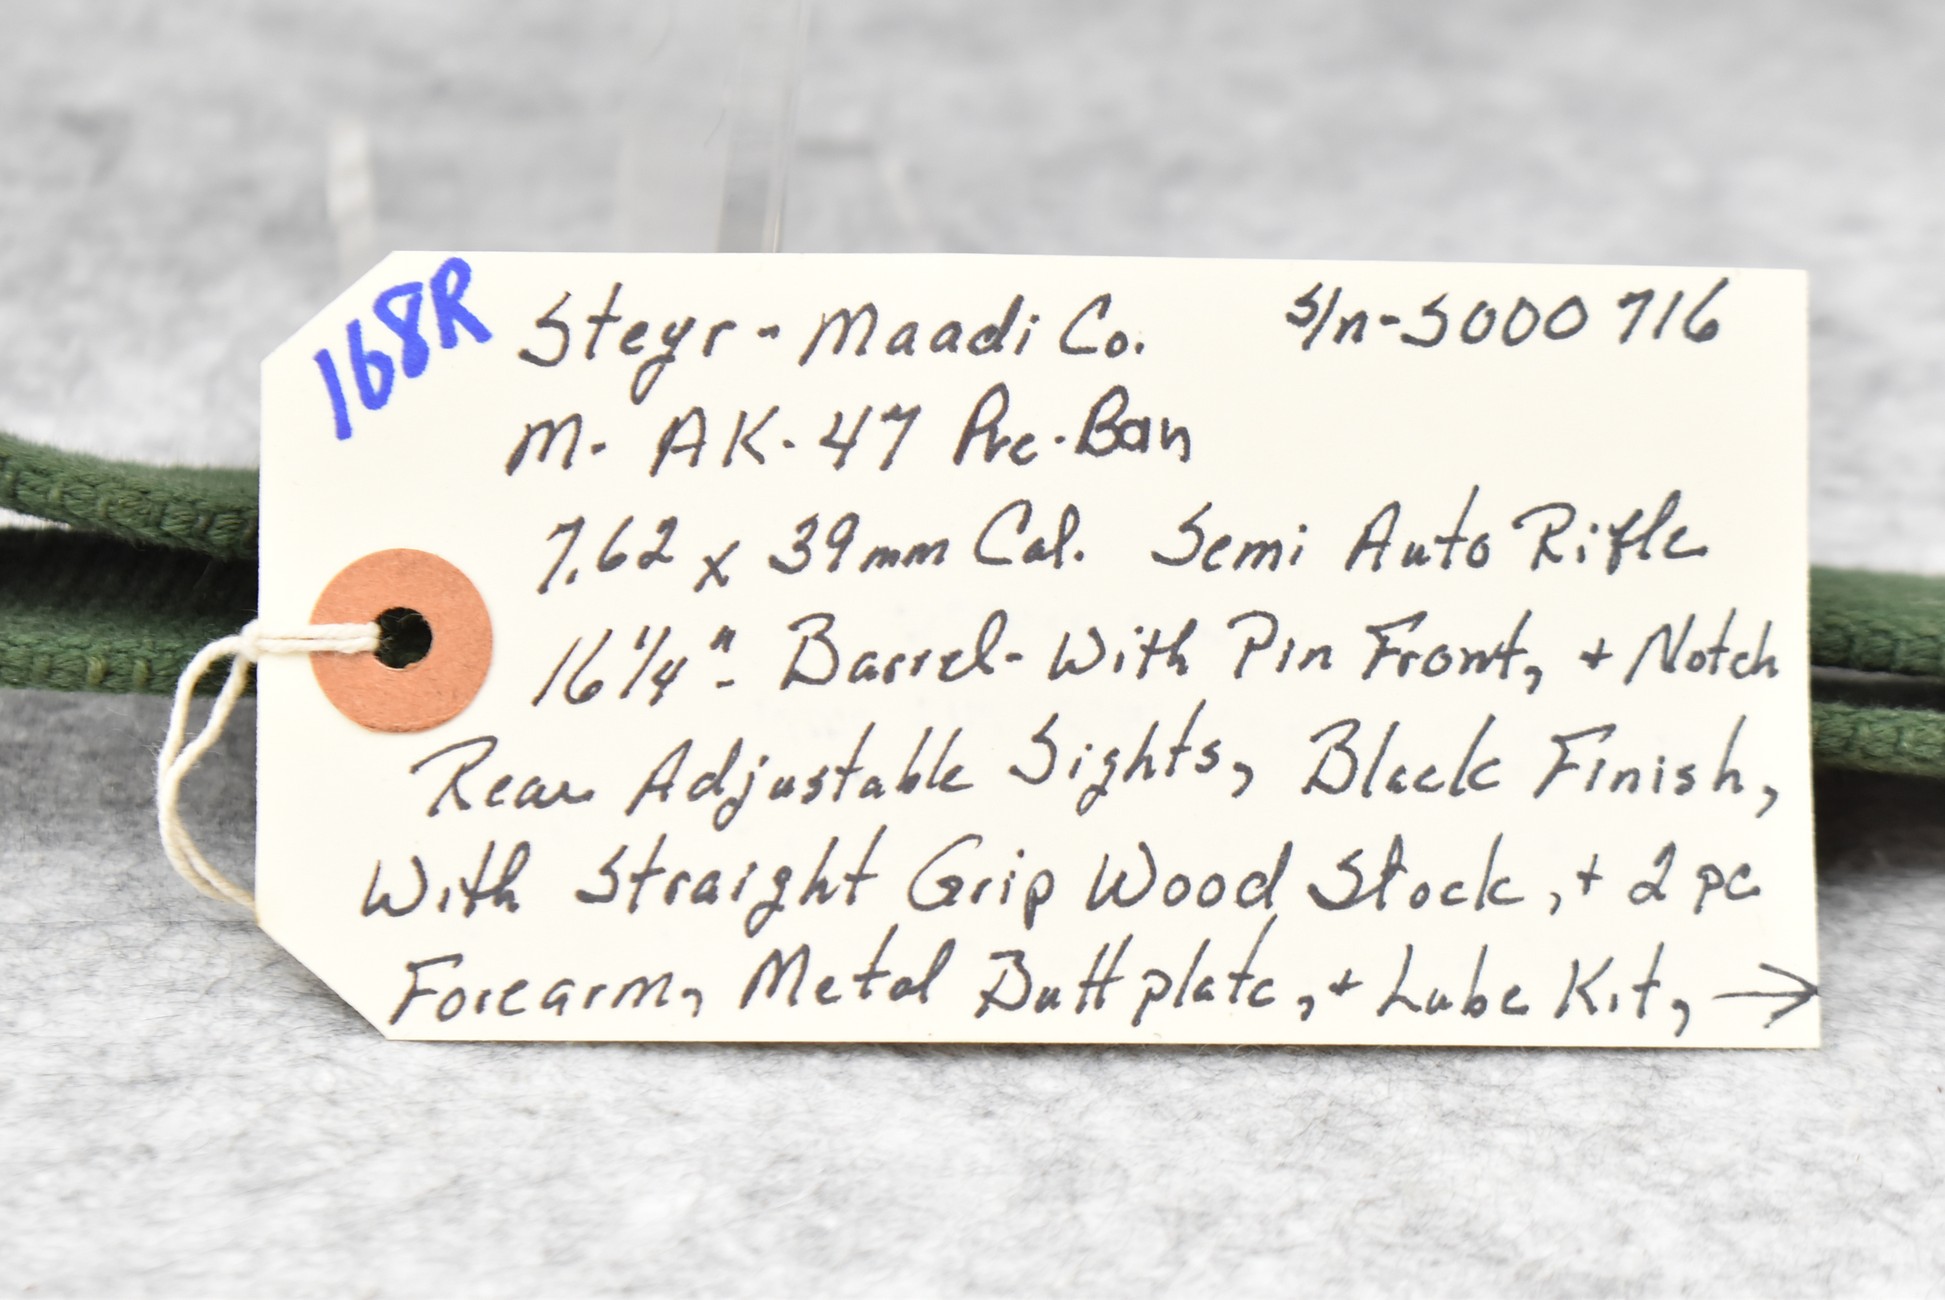 168R
Steyr - Maadi Co. S/n-S000716
M- AK-47 Pre-Ban
7.62 x 39mm Cal. Semi Auto Rifle
16 1/4" - Barrel- With Pin Front, + Notch
Rear Adjustable Sights, Black Finish,
With Straight Grip Wood Stock, + 2 pc
Forearm, Metal Buttplate, + Lube Kit, →